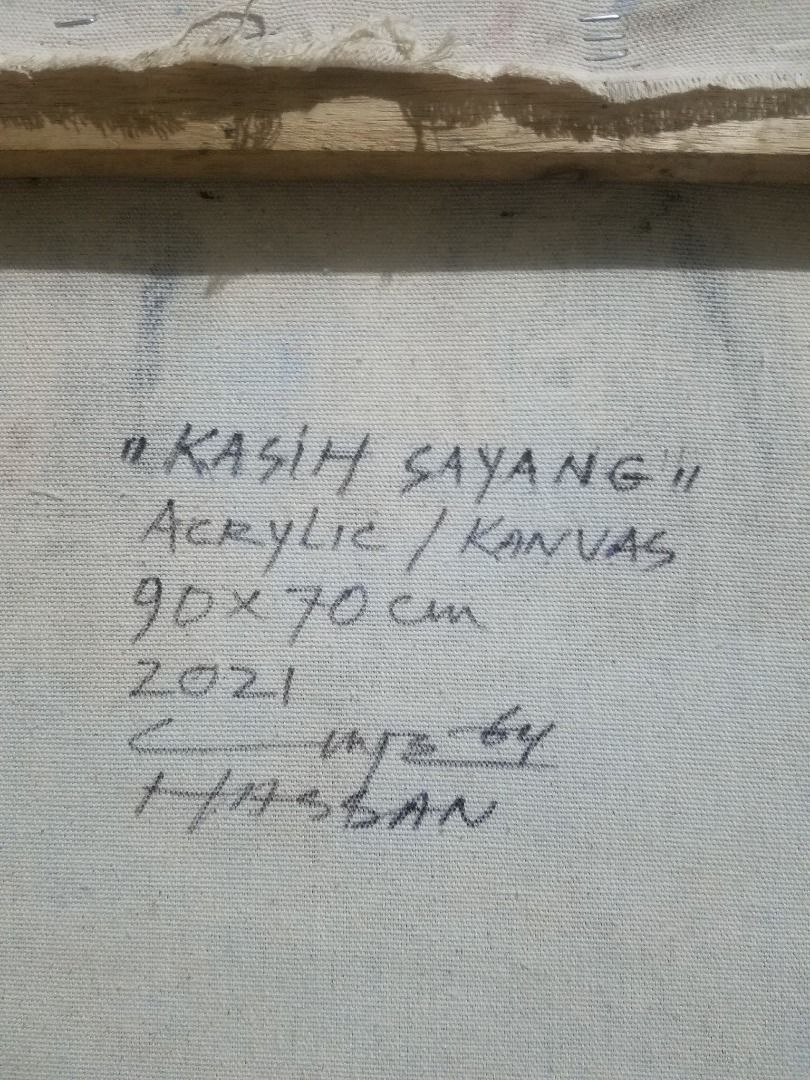 "KASIH SAYANG"
ACRYLIC / KANVAS
90x70 cm
2021
HASSAN